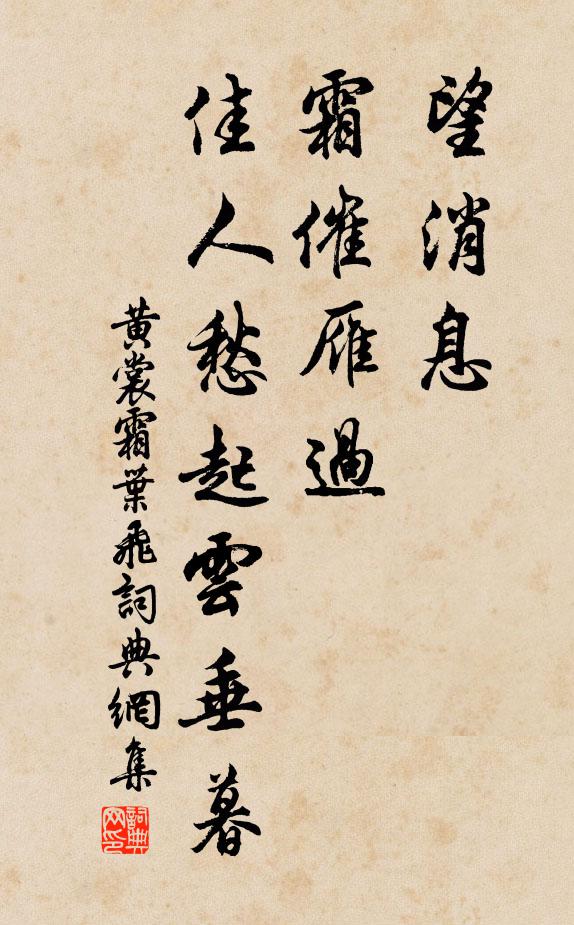 望消息
霜催雁過
佳人愁起雲垂暮
黃裳霜葉飛詞典網集
詞典网印